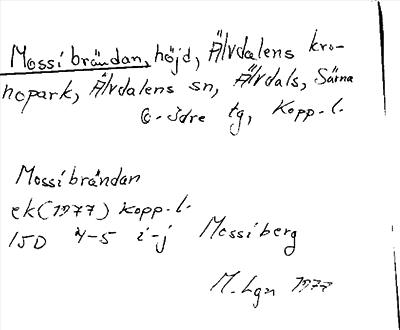 Mossibrändan, höjd, Älvdalens kro-
nopark, Älvdalens sn, Älvdals, Särna
o. Idre tg, Kopp. l.
Mossibrändan
ek (1977) Kopp. l.
15D 4-5 i-j Mossiberg
M. Lgn 1977